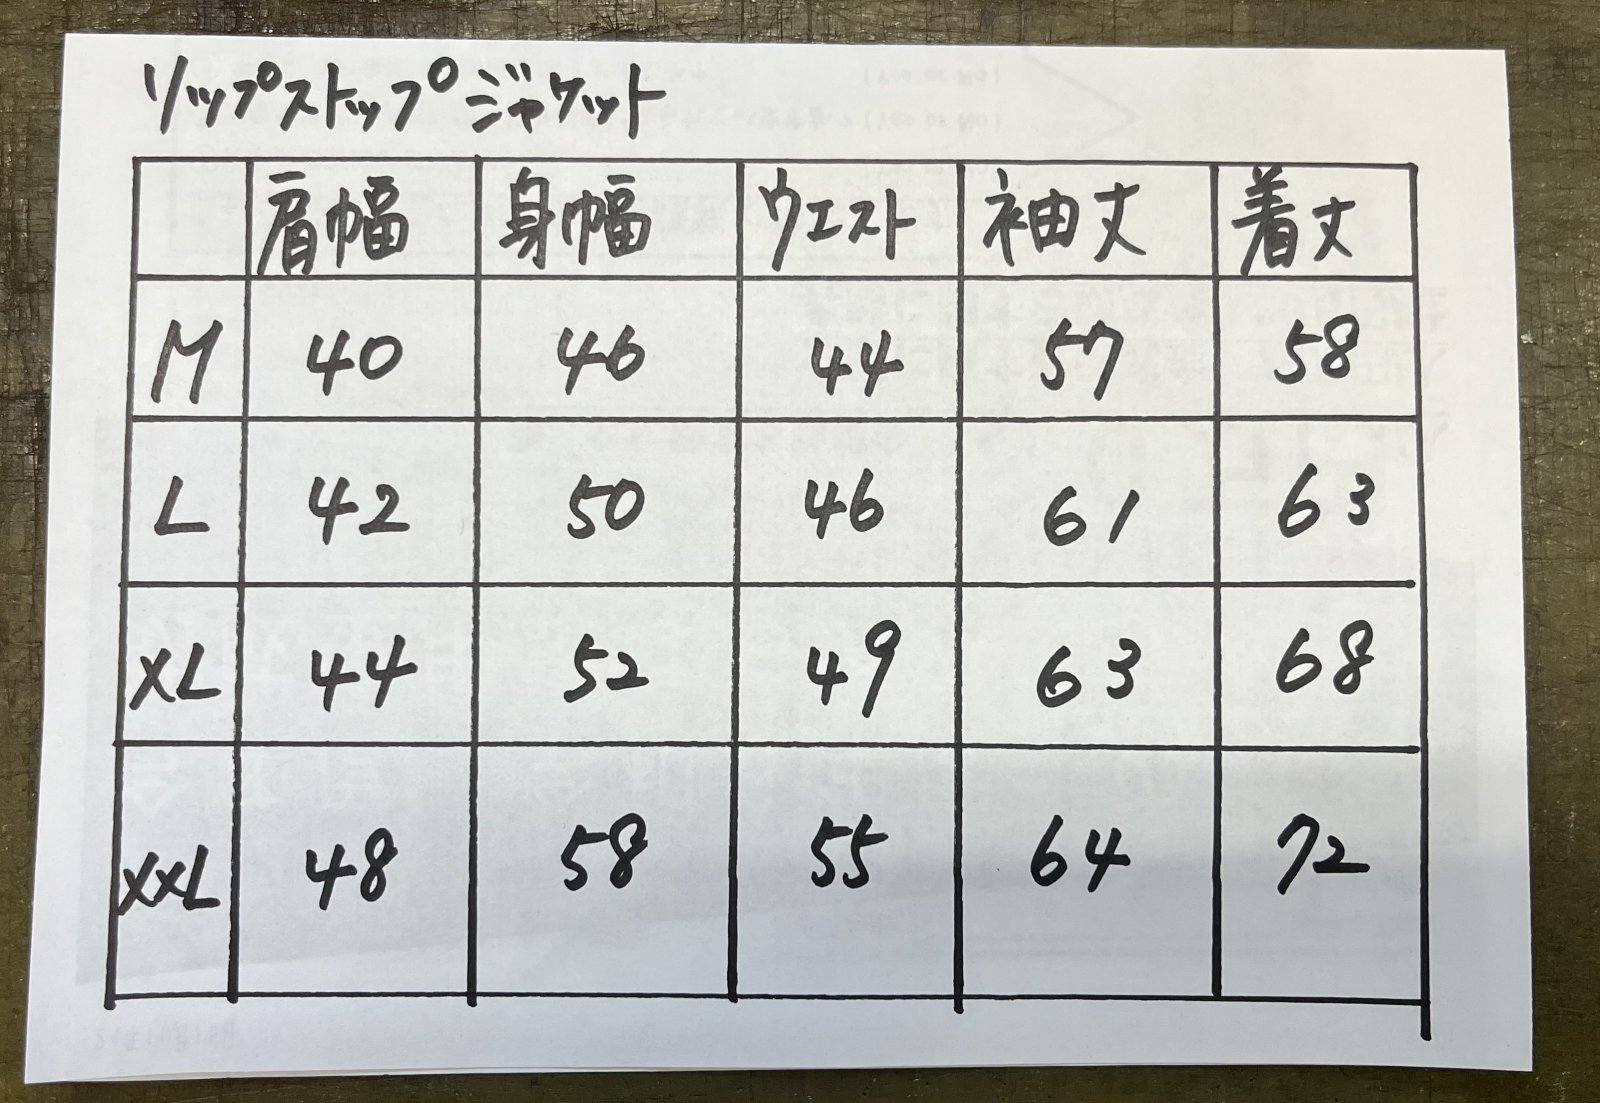 リップストップジャケット
肩幅 身幅 ウエスト 袖丈 着丈
M 40 46 44 57 58
L 42 50 46 61 63
XL 44 52 49 63 68
XXL 48 58 55 64 72